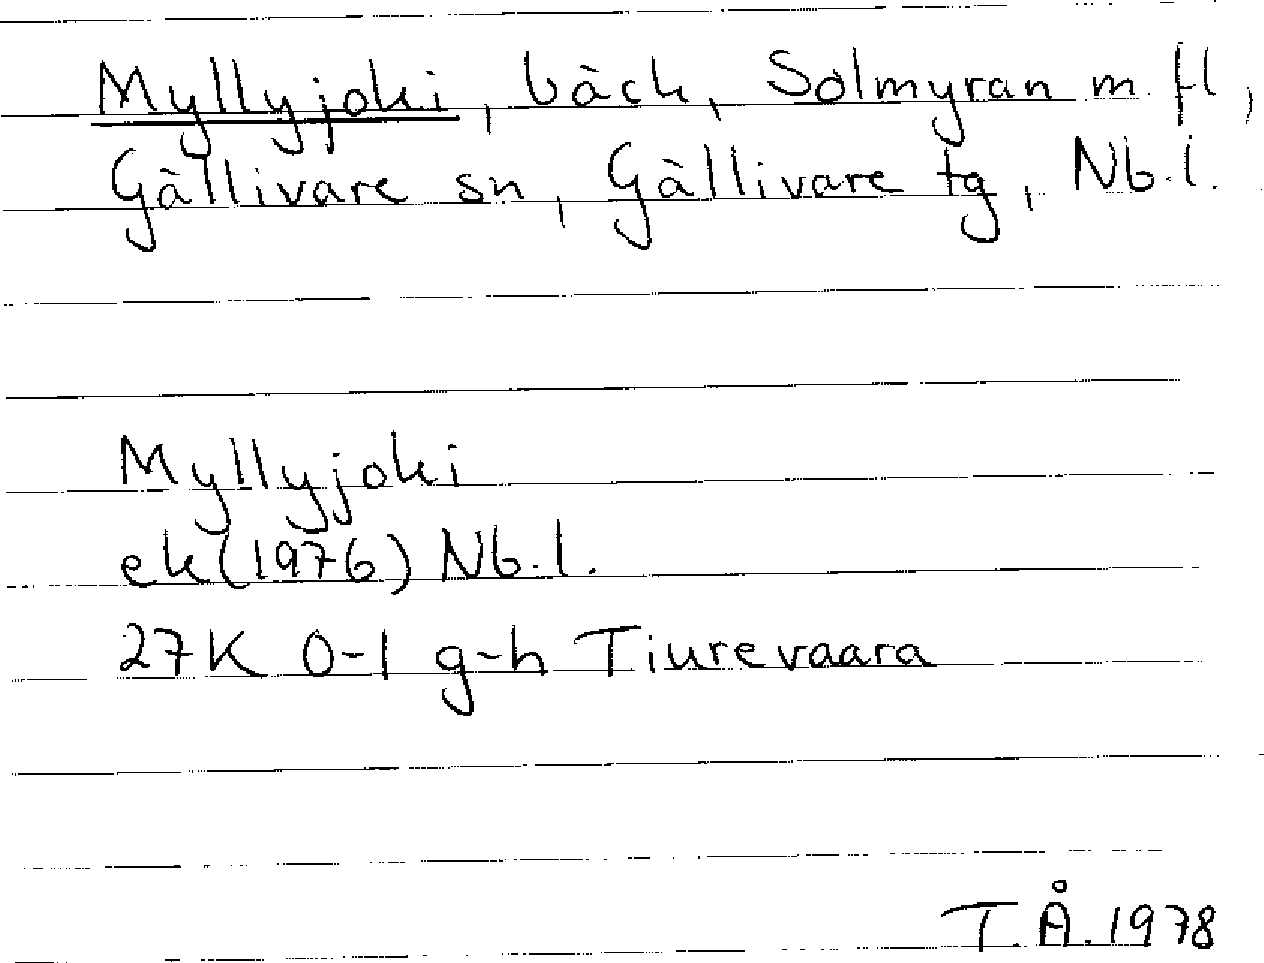 Myllyjoki, bäck, Solmyran m. fl,
Gällivare sn, Gällivare tg, Nb.l.
Myllyjoki
ek (1976) Nb.l.
27K 0-1 g-h Tiurevaara
T.Å. 1978